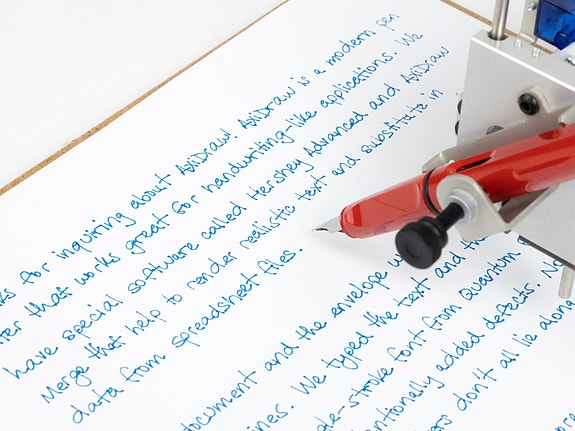 for inquiring about AxiDraw! AxiDraw is a modern pen
that works great for handwriting-like applications. We
have special software called Hershey Advanced and AxiDraw
Merge that help to render realistic text and substitute in
data from spreadsheet files.
and the envelope
We typed the text and
font from Quantum
added defects.
don't all lie